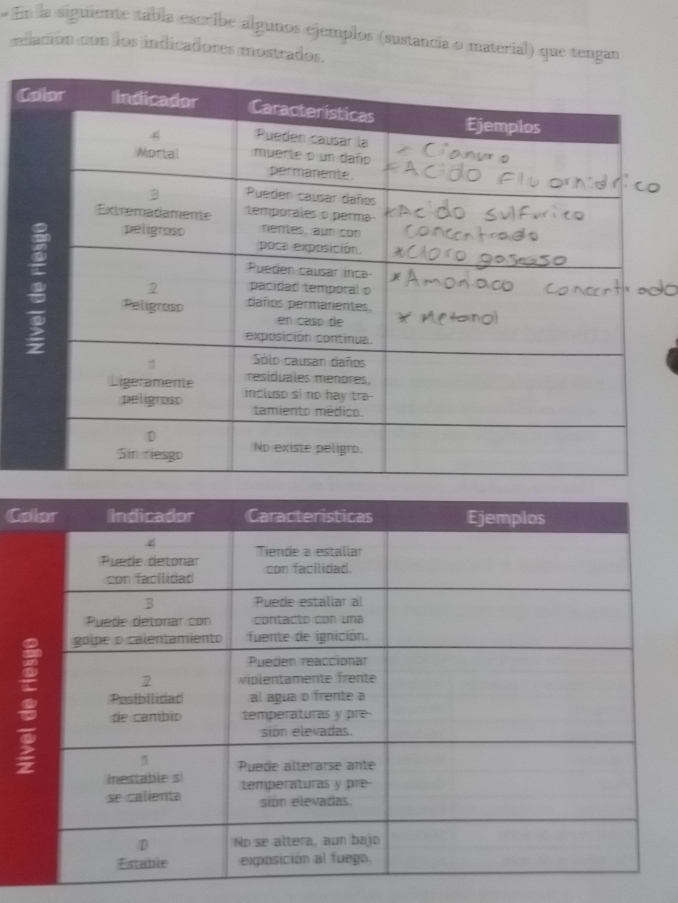 - En la siguiente tabla escribe algunos ejemplos (sustancia o material) que tengan
relación con los indicadores mostrados.
Color Indicador Características Ejemplos
Nivel de riesgo
4
Mortal
Pueden causar la
muerte o un daño
permanente.
* Cianuro
* Acido Fluorhidrico
3
Extremadamente
peligroso
Pueden causar daños
temporales o perma-
nentes, aun con
poca exposición.
* Acido sulfurico
concentrado
* Cloro gaseoso
2
Peligroso
Pueden causar inca-
pacidad temporal o
daños permanentes,
en caso de
exposición continua.
* Amoniaco concentrado
* Metanol
1
Ligeramente
peligroso
Sólo causan daños
residuales menores,
incluso si no hay tra-
tamiento médico.
0
Sin riesgo
No existe peligro.
Color Indicador Características Ejemplos
Nivel de riesgo
4
Puede detonar
con facilidad
Tiende a estallar
con facilidad.
3
Puede detonar con
golpe o calentamiento
Puede estallar al
contacto con una
fuente de ignición.
2
Posibilidad
de cambio
Pueden reaccionar
violentamente frente
al agua o frente a
temperaturas y pre-
sión elevadas.
1
Inestable si
se calienta
Puede alterarse ante
temperaturas y pre-
sión elevadas.
0
Estable
No se altera, aun bajo
exposición al fuego.